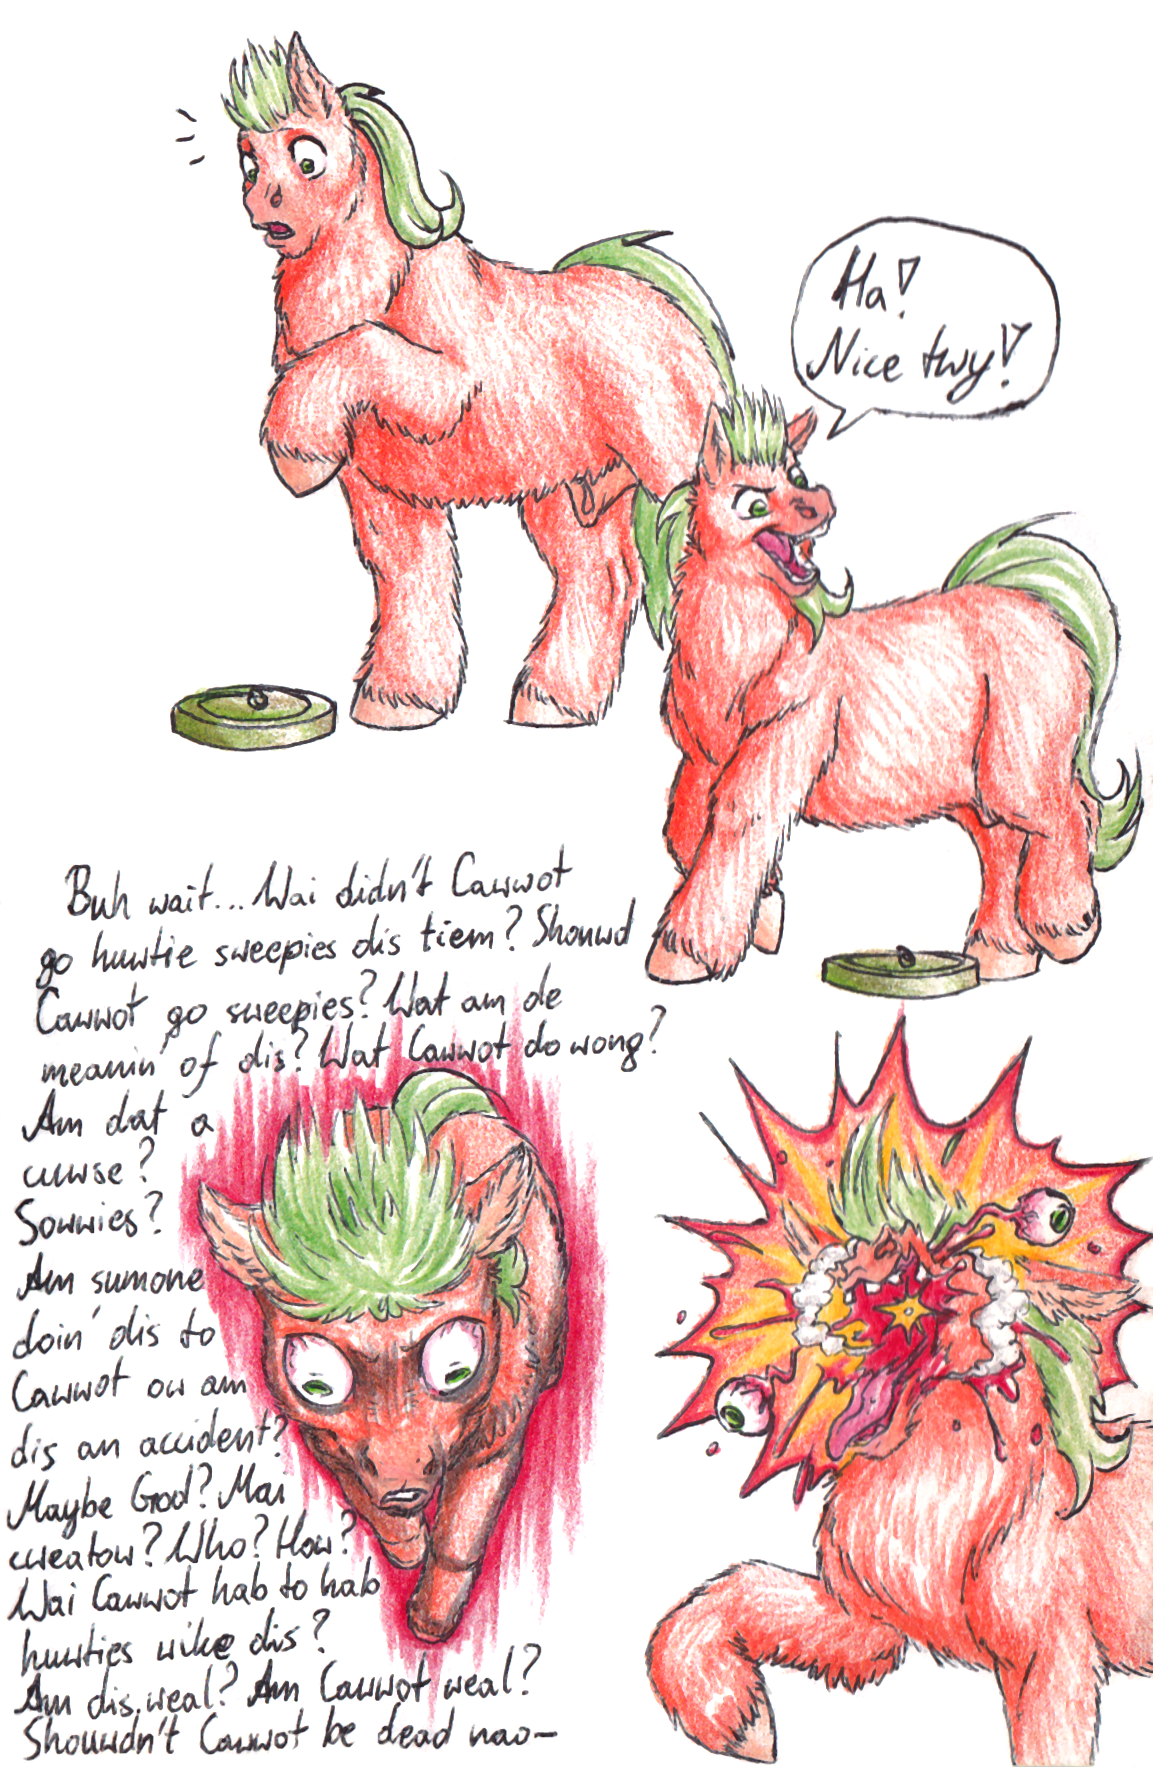 Ha!
Nice twy!
Buh wait... Wai didn't Cawwot
go huwtie sweepies dis tiem? Shouwd
Cawwot go sweepies? Wat am de
meanin' of dis? Wat Cawwot do wong?
Am dat a
cuwse?
Sowwies?
Am sumone
doin' dis to
Cawwot ow am
dis an accident?
Maybe God? Mai
cweatow? Who? How?
Wai Cawwot hab to hab
huwties wike dis?
Am dis weal? Am Cawwot weal?
Shouwdn't Cawwot be dead nao-